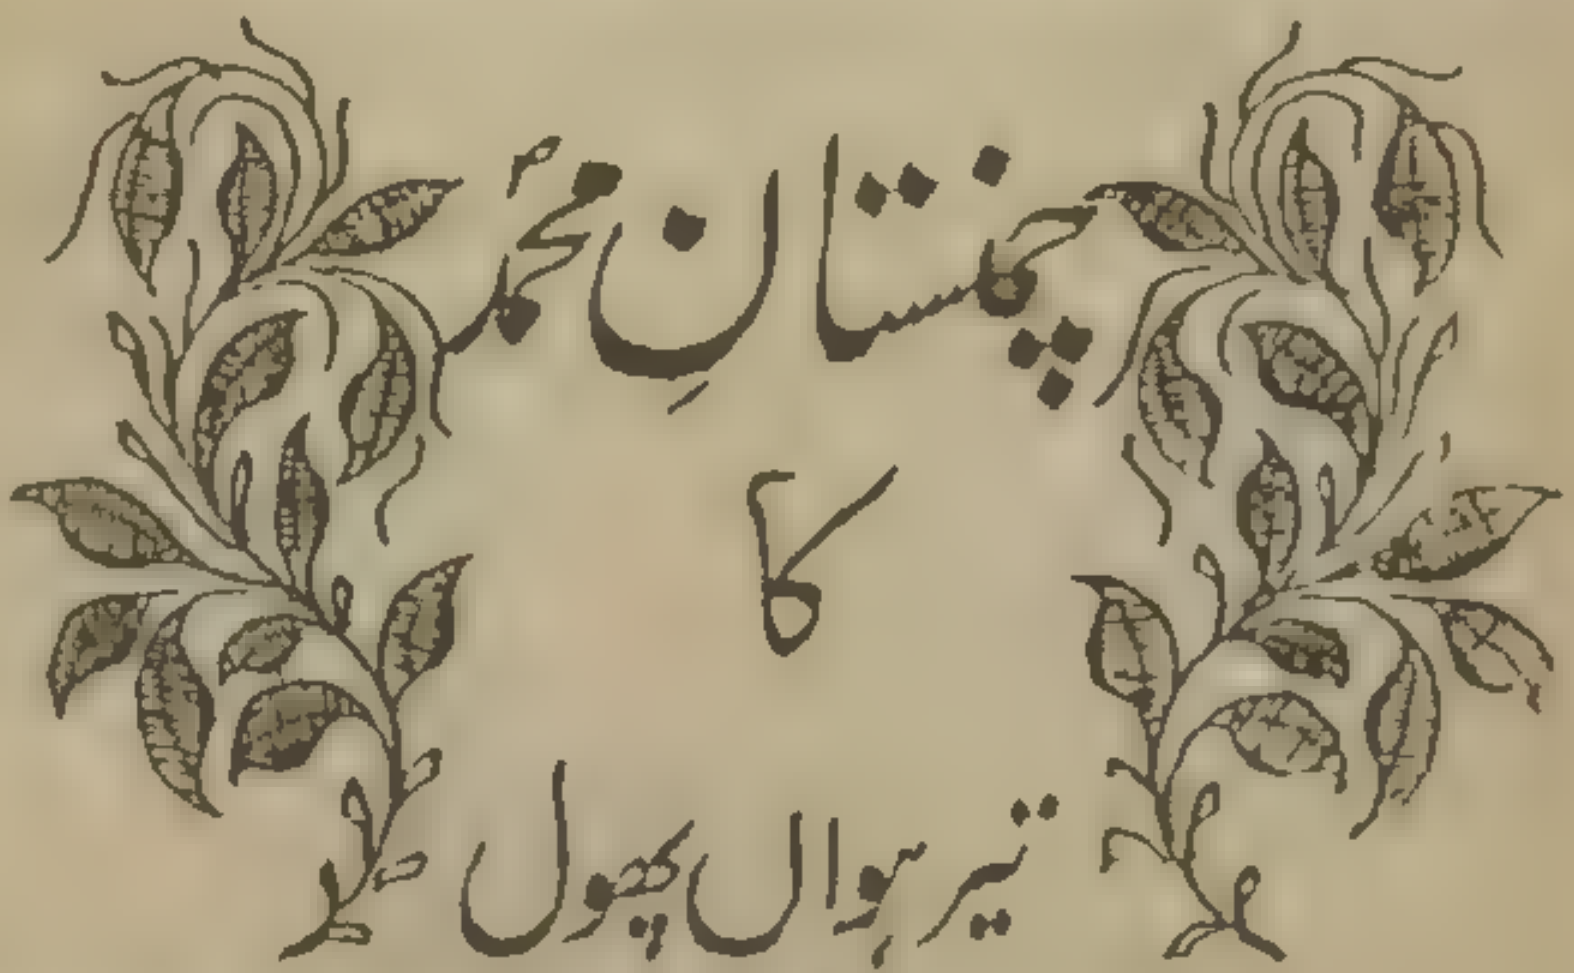 چمنستانِ محمدؐ
کا
تیرہواں پھول